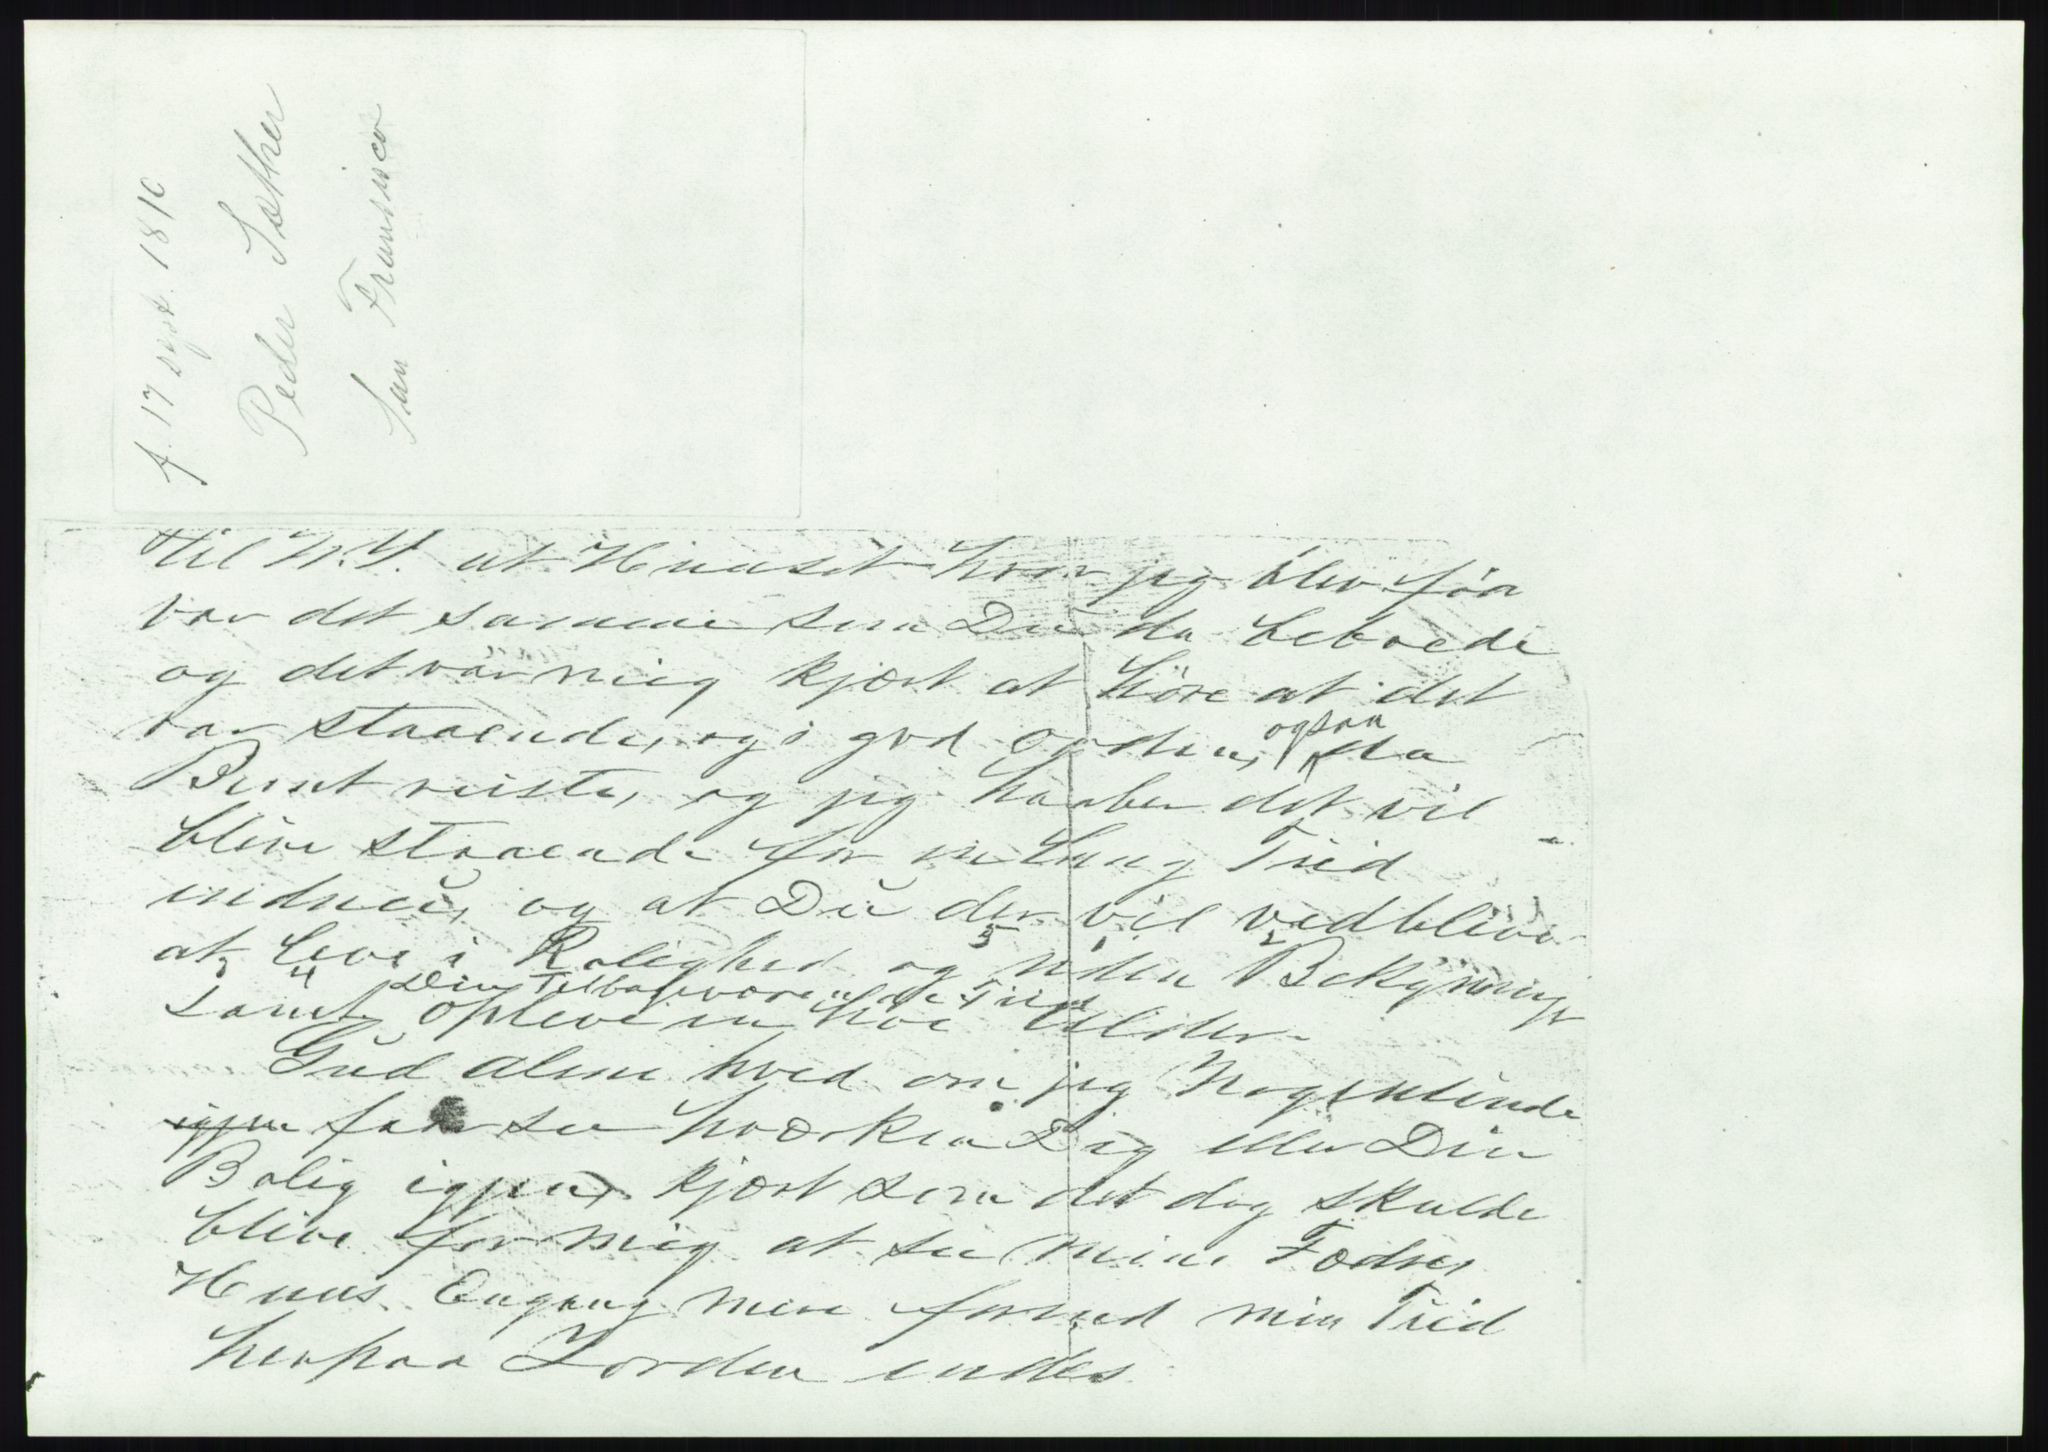 f. 17 sept. 1810
Peder Sather
San Fransisco
til N.Y. at Huuset hvor jeg blev fød
var det samme som Du da beboede
og det var mig kjært at høre at det
var staaende, og i god orden, ogsaa da
Bernt reiste, og jeg haaber det vil
blive staaende for en lang Tiid
endnu, og at Du der vil vedblive
at leve i Rolighed og uden Bekymringer
samt opleve en høi Alder.
Din Tilbageværende Tiid
Gud alene hved om jeg Nogenlunde
igjen faar see hværken Dig eller Din
Bolig igjen, kjært som det dog skulde
blive for mig at see mine Fædres
Huus Engang mere forend min Tiid
herpaa Jorden endes